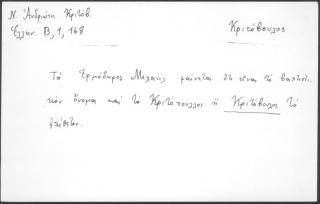 Ν. Ἀνδριώτη Κριτόβ.
Ἑλλην. Β, 1, 168
Κριτόβουλος
Τὸ Ἑρμόδωρος Μιχαὴλ φαίνεται ὅτι εἶναι τὸ βαπτιστι-
κὸν ὄνομα καὶ τὸ Κριτόπουλος ἢ Κριτόβουλος τὸ
ἐπίθετον.